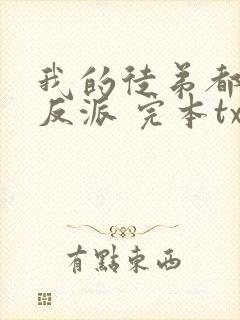 我的徒弟都
反派 完本tx
有點東西